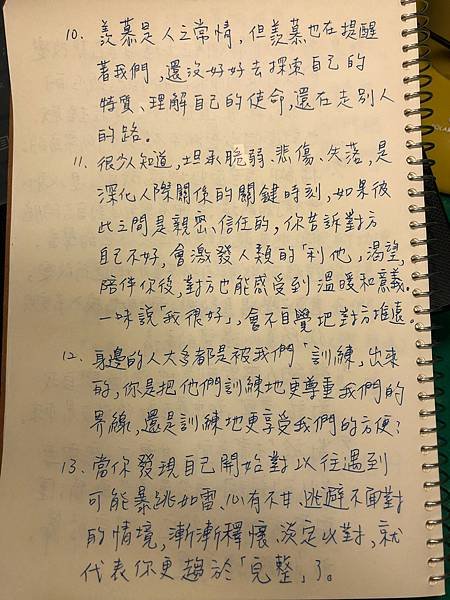 10. 羨慕是人之常情，但羨慕也在提醒
著我們，還沒好好去探索自己的
特質、理解自己的使命，還在走別人
的路。
11. 很少人知道，坦承脆弱、悲傷、失落，是
深化人際關係的關鍵時刻，如果彼
此之間是親密、信任的，你告訴對方
自己不好，會激發人類的「利他」渴望，
陪伴你後，對方也能感受到溫暖和意義。
一味說「我很好」，會不自覺地對方推遠。
12. 身邊的人大多都是被我們「訓練」出來
的，你是把他們訓練地更尊重我們的
界線，還是訓練地更享受我們的方便？
13. 當你發現自己開始對以往遇到
可能暴跳如雷、心有不甘、逃避不面對
的情境，漸漸釋懷、淡定以對，就
代表你更趨於「完整」了。